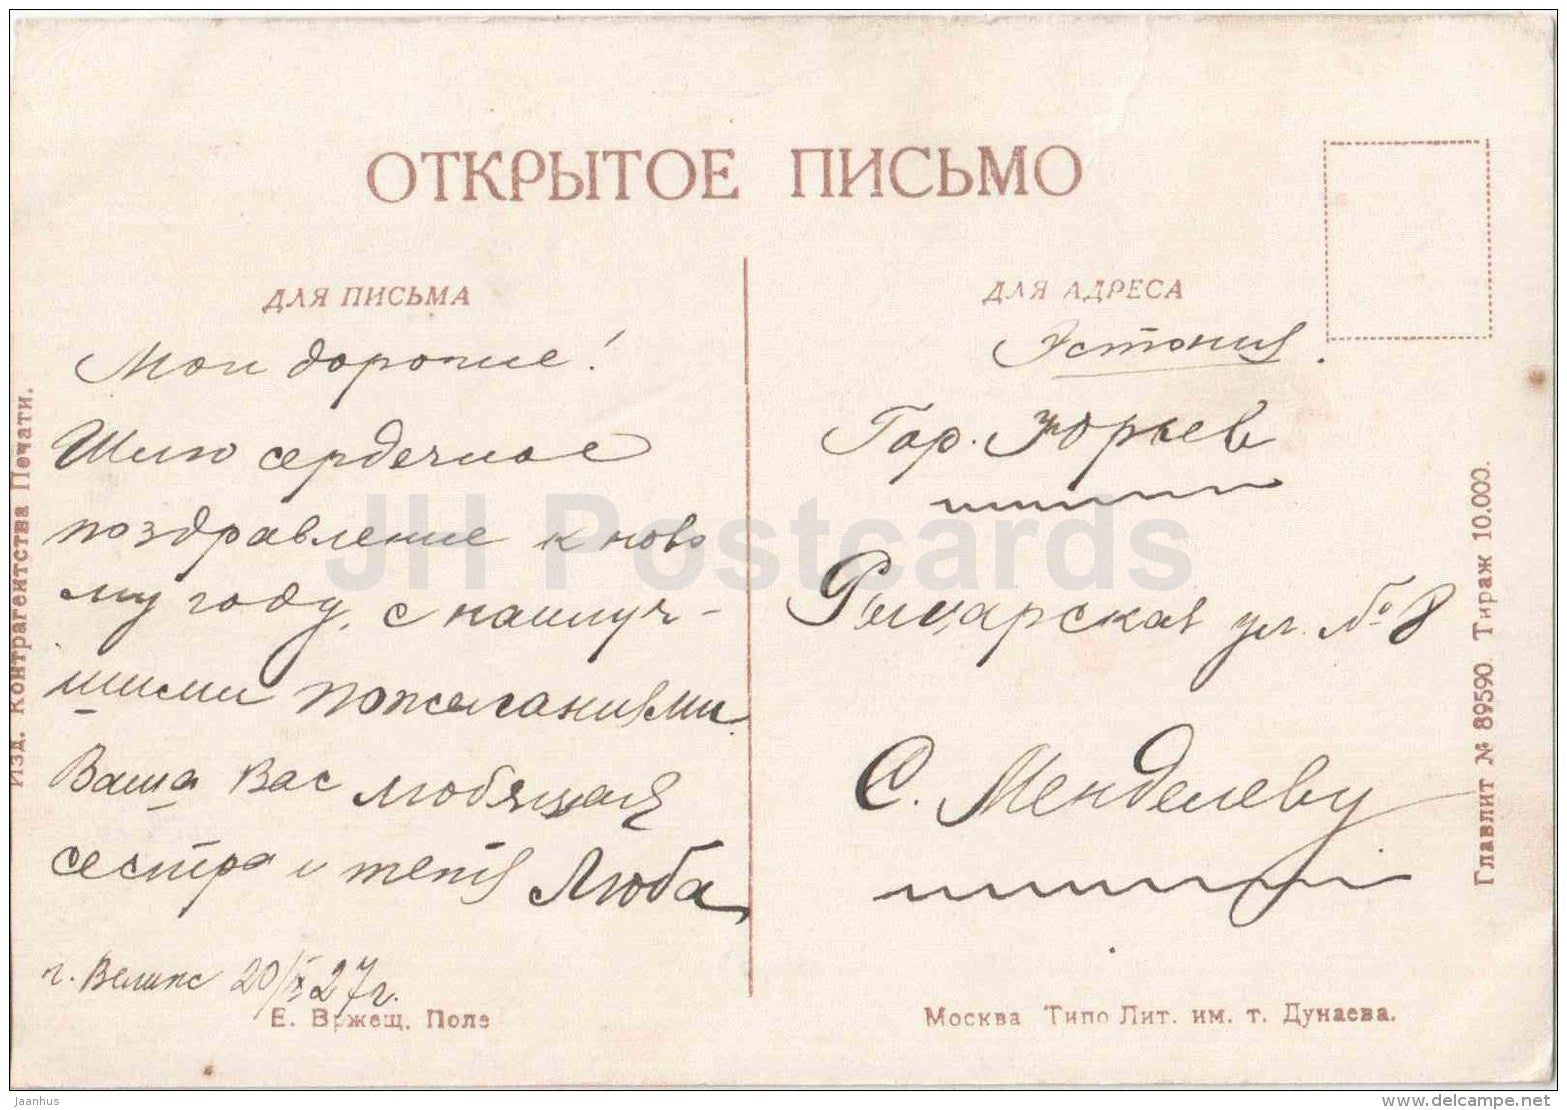 ОТКРЫТОЕ ПИСЬМО
ДЛЯ ПИСЬМА
Мои дорогие!
Шлю сердечное
поздравление к ново
му году, с наилуч-
шими пожеланиями.
Ваша Вас любящая
сестра и тетя Люба
г. Велиж 20/IX 27 г.
Е. Вржещ. Поле
Изд. Контрагентства Печати.
ДЛЯ АДРЕСА
Эстония.
Гор. Юрьев
Рыцарская ул. № 8
С. Менделеву
Москва Типо Лит. им. т. Дунаева.
Главлит № 89590. Тираж 10.000.
JH Postcards
Jaanhus
www.delcampe.net